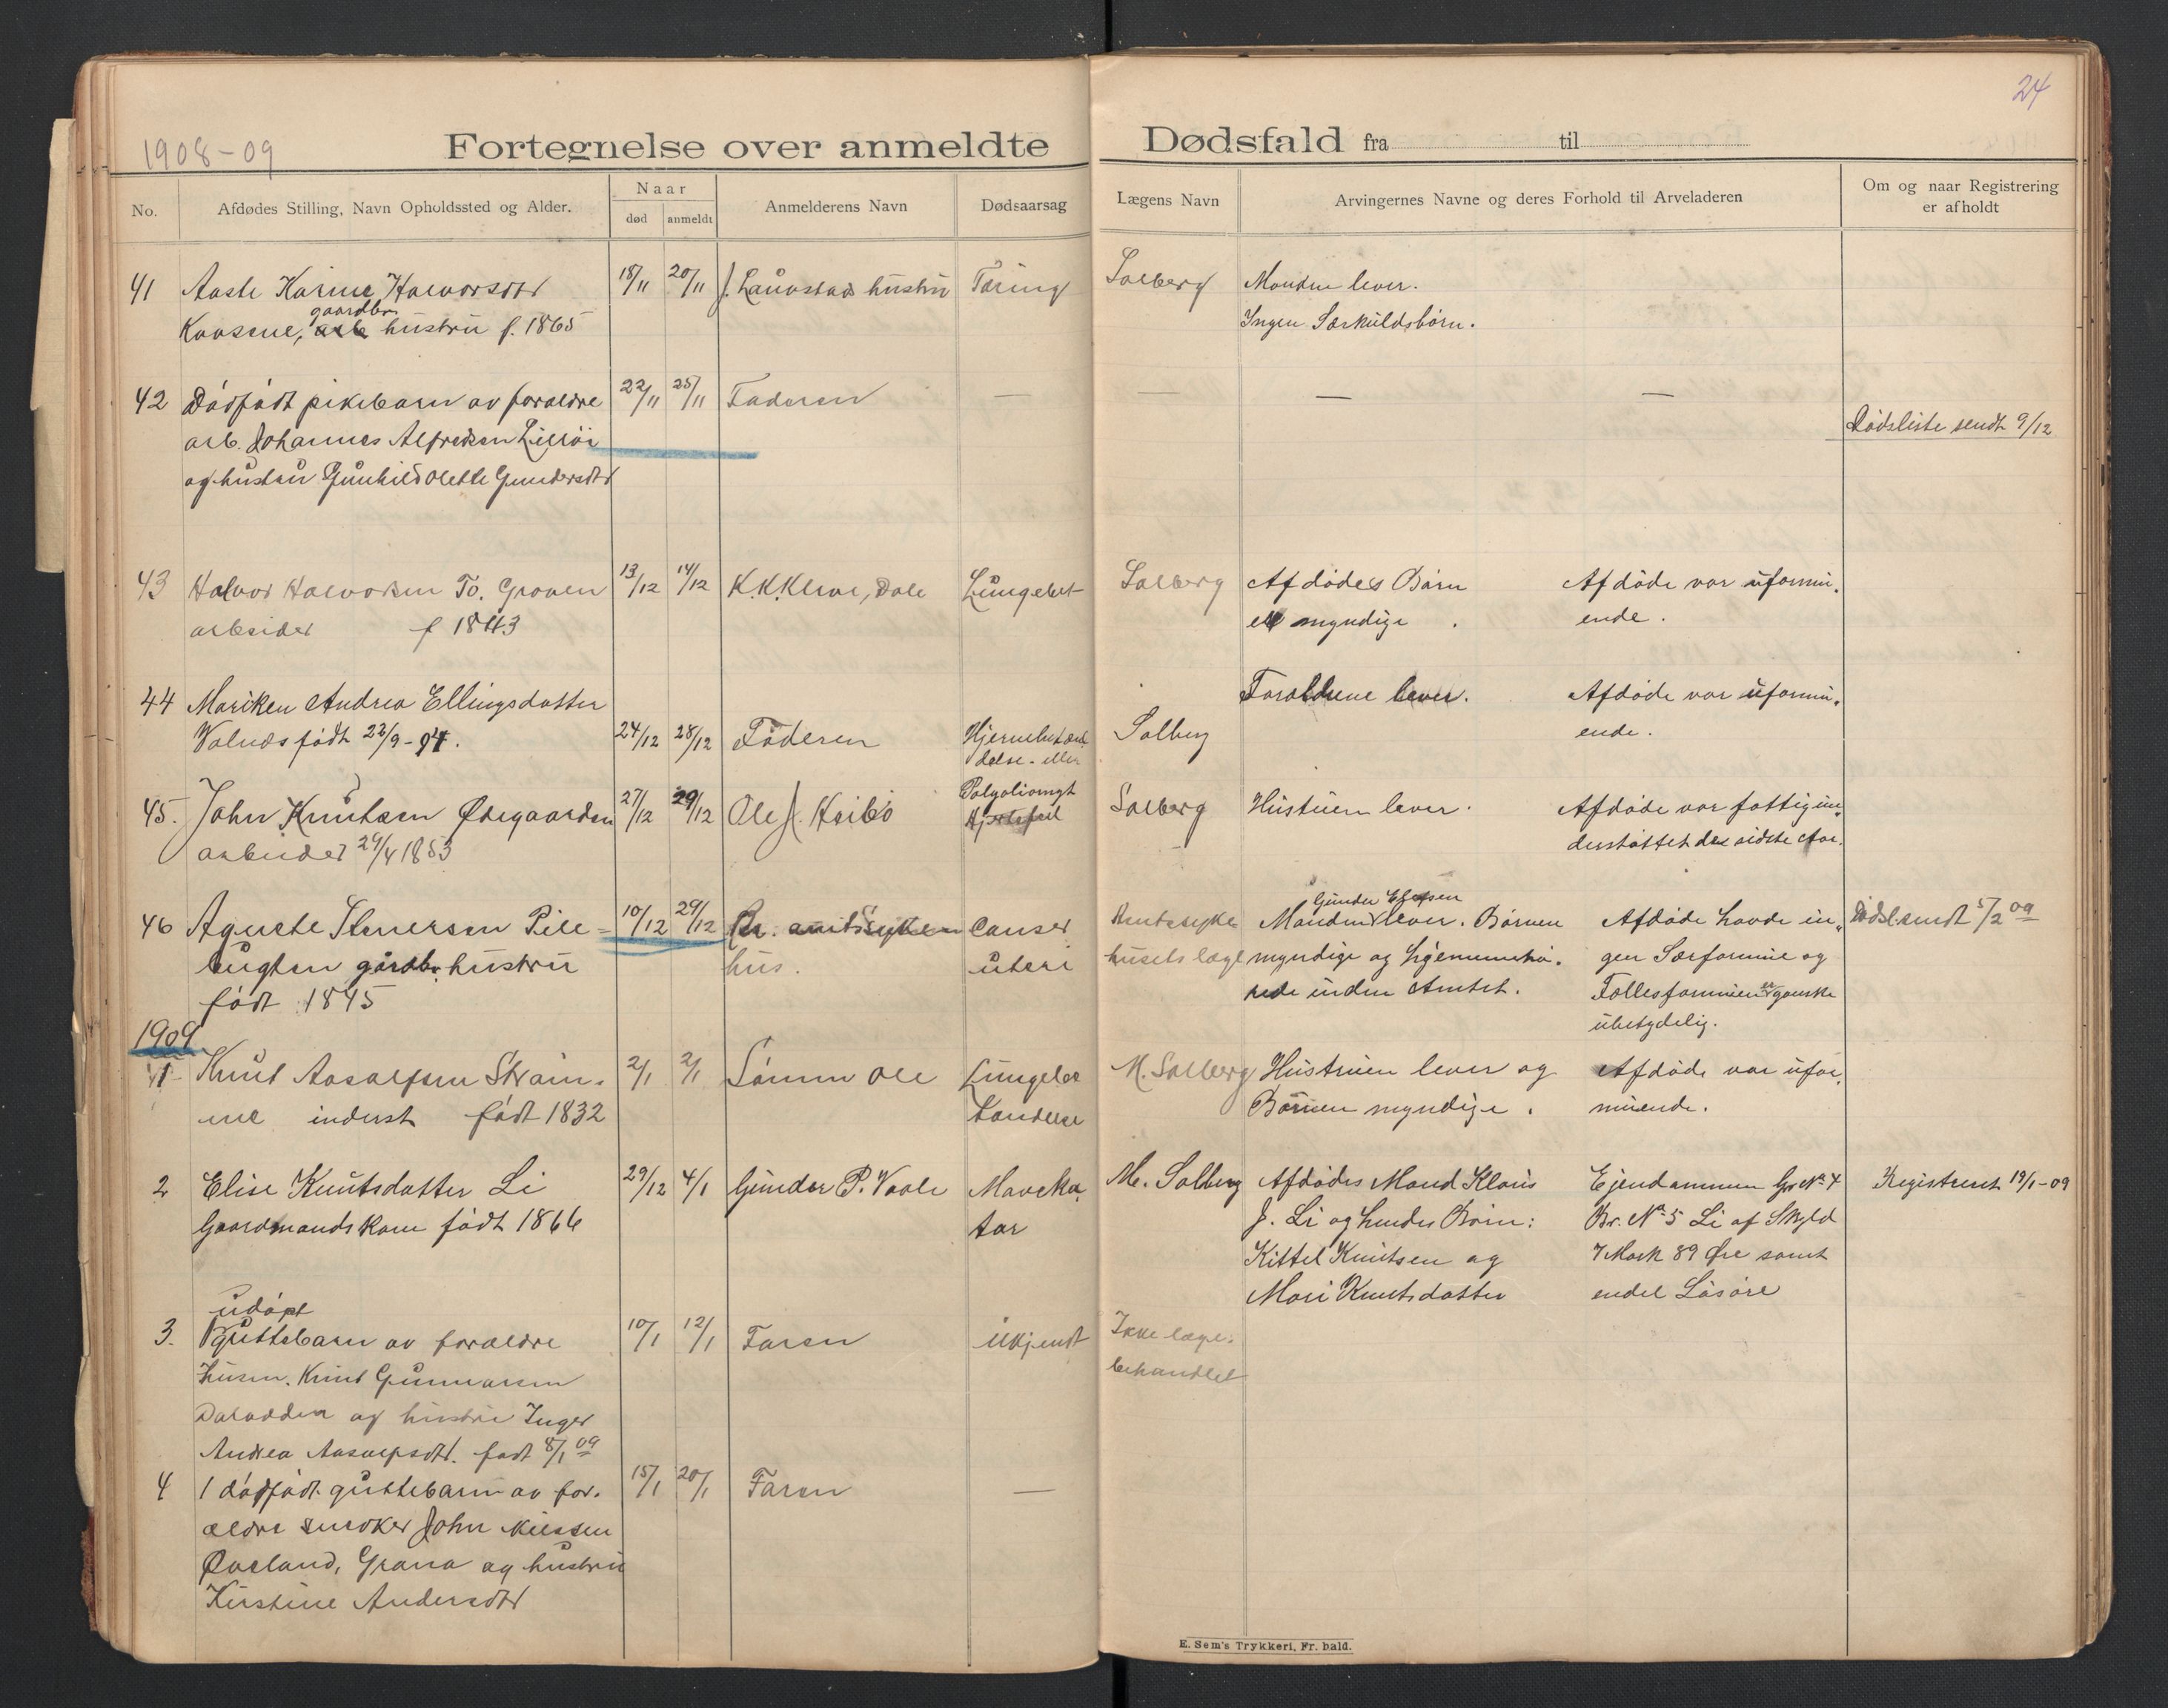 24
1908-09
Fortegnelse over anmeldte Dødsfald fra til
No.
Afdødes Stilling, Navn Opholdssted og Alder.
Naar
død
anmeldt
Anmelderens Navn
Dødsaarsag
Lægens Navn
Arvingernes Navne og deres Forhold til Arveladeren
Om og naar Registrering
er afholdt
41 Aaste Karine Halvorsdtr 18/11 20/11 hustru Tæring Solberg Manden lever.
gaardbr.
hustru f. 1865 Ingen Særkuldsbørn.
42 Dødfødt pikebarn av forældre 22/11 25/11 Faderen — — — —
Dødsliste sendt 9/12
arb. Johannes Alfredsen
og hustru Gunhild Olette Gundersdtr
43 Halvor Halvorsen To. Groven 13/12 14/12 K.K.Kleve, Dale Lungebet Solberg Afdødes Børn Afdøde var uformu-
arbeider f 1843 myndige. ende.
44 Mariken Andrea Ellingsdatter Forældrene lever. Afdøde var uformu-
født 22/9-94. 24/12 28/12 Faderen Hjernebetænd Solberg ende.
delse - eller
45. John Knutsen Ødegaarden 27/12 29/12 Ole J. Solberg Hustruen lever. Afdøde var fattigun-
arbeider 29/4 1853 Hjertefeil derstøttet det sidste Aar.
46 Agnete Stenersen Pile- 10/12 29/12 Br. amtssyke Canser Amtssyke Manden Gunder Elefsen lever. Børnene Afdøde havde in- Dødsl. sendt 5/2 09
bugten gårdbr. hustru hus. uteri husets læge myndige og hjemmehø- gen Særformue og
født 1845 rede inden Amtet. Fællesformuen er ganske
ubetydelig.
1909
1 Knut Aasulfsen 2/1 2/1 Sønnen Ole Lungebe M. Solberg Hustruen lever og Afdøde var ufor-
inderst født 1832 tændelse Børnene myndige. muende.
2 Elise Knutsdatter Li 29/12 4/1 Gunder P. Vaale Maveka- M. Solberg Afdødes Mand Klaus Ejendommen Gr. No 4 Registreret 19/1-09
Gaardmandskone født 1866 tar J. Li og hendes Børn: Br. No 5 Li af Skyld
Kittel Knutsen og 7 Mark 89 Øre samt
Mari Knutsdatter endel Løsøre
udøpt
3. Guttebarn av forældre 10/1 12/1 Faren Ukjendt Ikke læge-
husm. Knut Gunnarsen behandlet
og hustru Inger
Andrea Aasulfsdtr. født 8/1 09
4 1 dødfødt guttebarn av for- 15/1 20/1 Faren —
ældre snekker John Nilssen
Øveland, Grana og hustru
Kirstine Andersdtr
E. Sem's Trykkeri, Fr. hald.